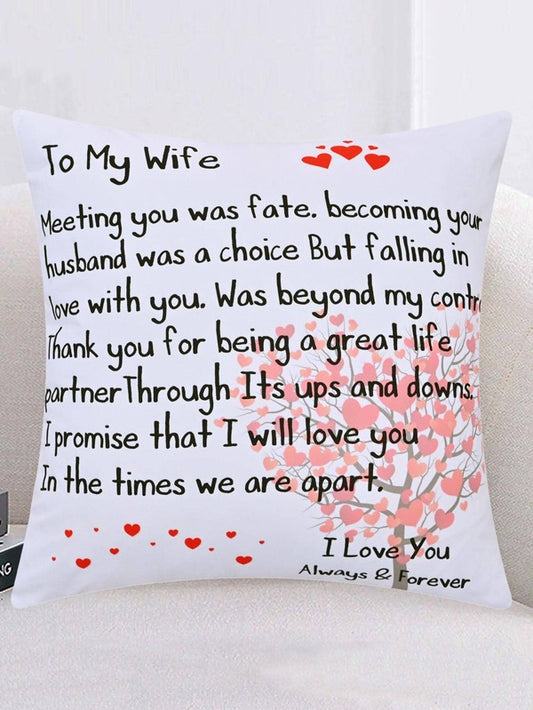 To My Wife
Meeting you was fate. becoming your
husband was a choice But falling in
love with you. Was beyond my contr
Thank you for being a great life
partner Through Its ups and downs.
I promise that I will love you
In the times we are apart.
I Love You
Always & Forever
NG